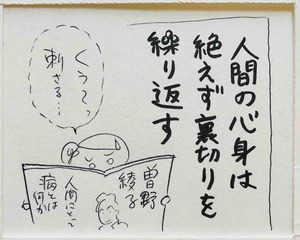 人間の心身は
絶えず裏切りを
繰り返す
くぅ〜っ
刺さる…
曽野
綾子
人間にとって
病とは
何か